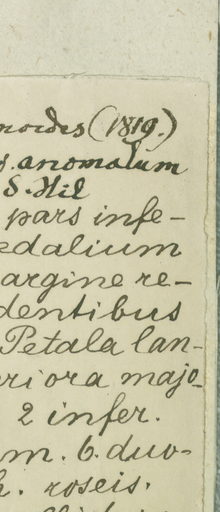 noides (1819.)
s. anomalum
S. Hil
pars infe-
edalium
argine re-
dentibus
Petala lan-
riora majo-
2 infer.
m. 6. duo-
h. roseis.